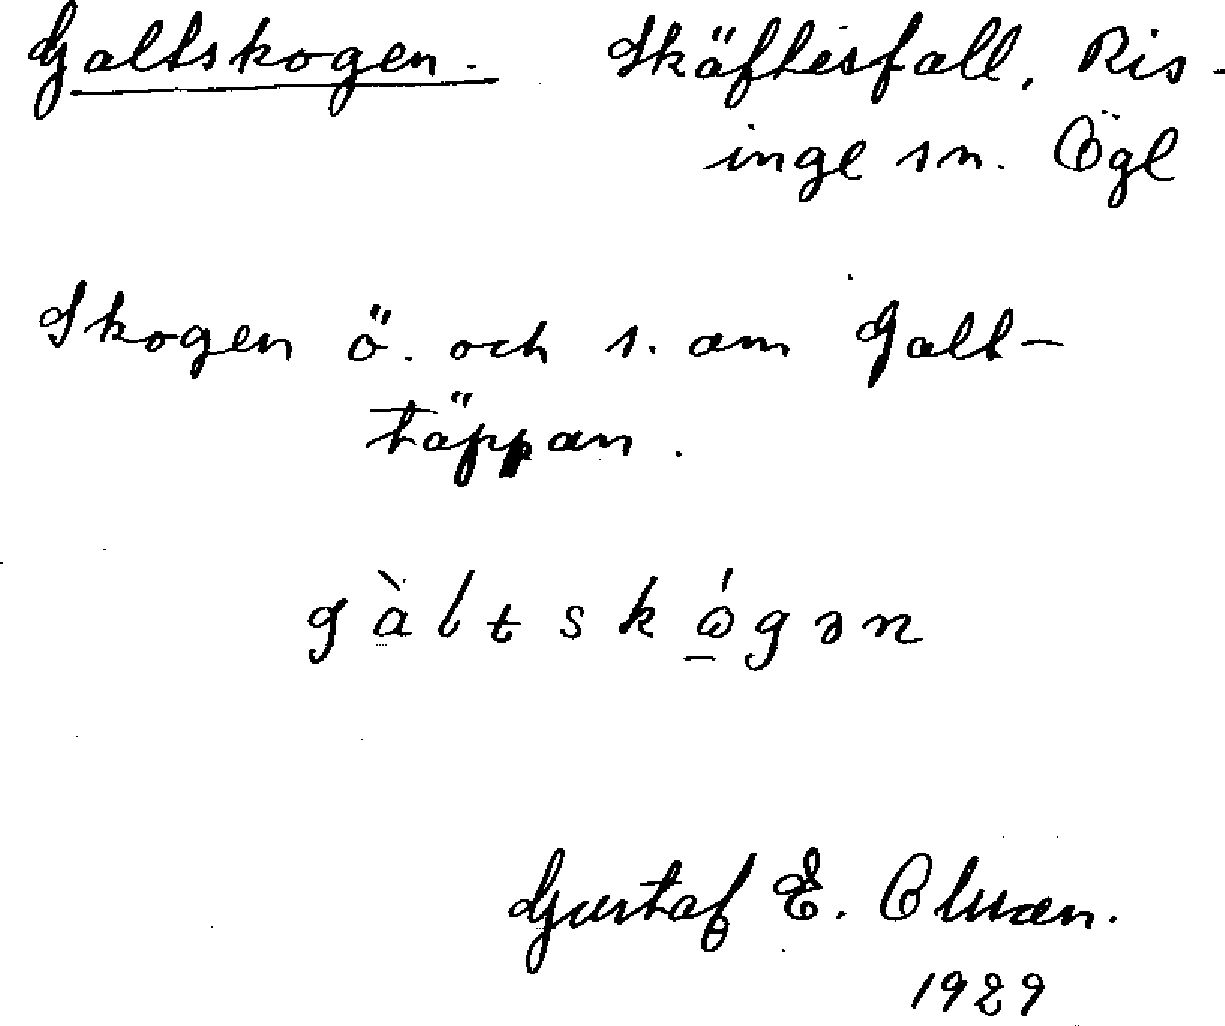 Galtskogen. Skäftesfall, Ris-
inge sn. Ögl
Skogen ö. och s. om Galt-
täppan.
gàltskógən
Gustaf E. Olsson.
1929